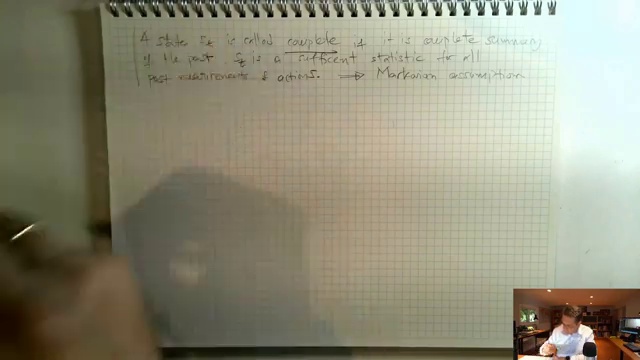 A state st is called complete if it is complete summary
of the past st is a sufficent statistic for all
past measurements & actions. ⟹ Markovian assumption